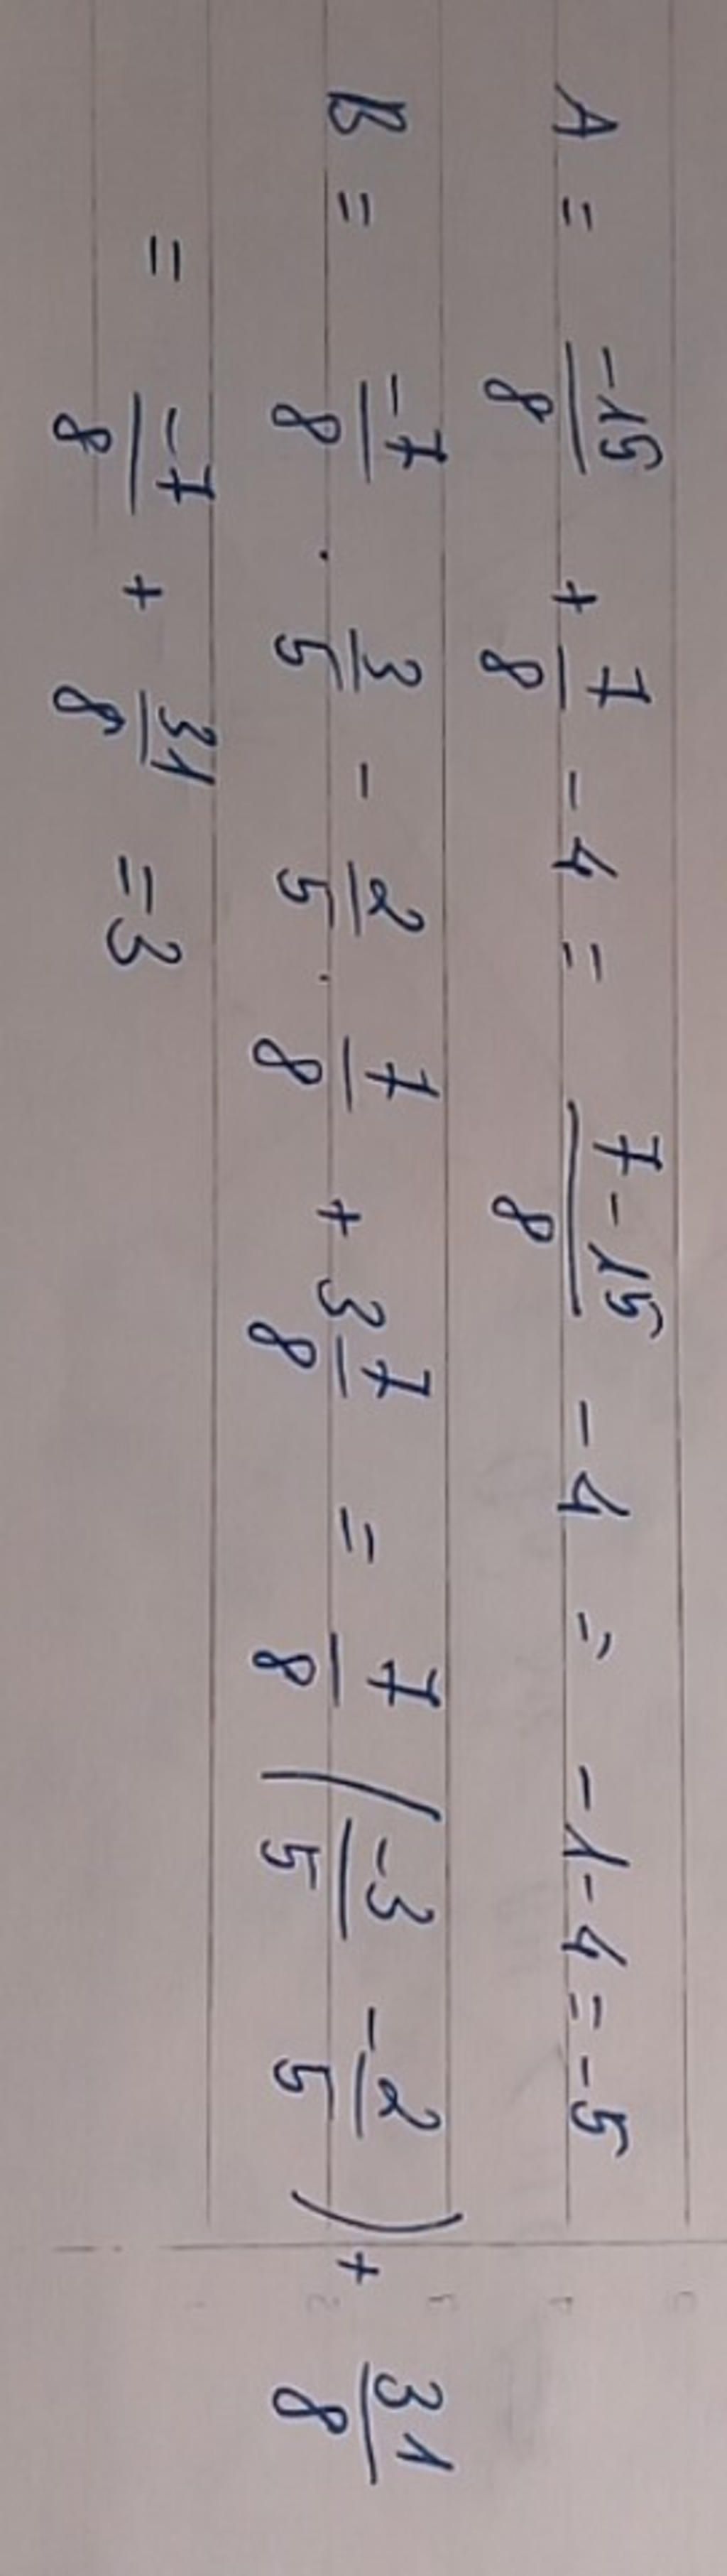 A = -15/8 + 7/8 - 4 = 7-15/8 - 4 = -1-4 = -5
B = -7/8 . 3/5 - 2/5 . 7/8 + 3 7/8 = 7/8 (-3/5 - 2/5) + 31/8
= -7/8 + 31/8 = 3